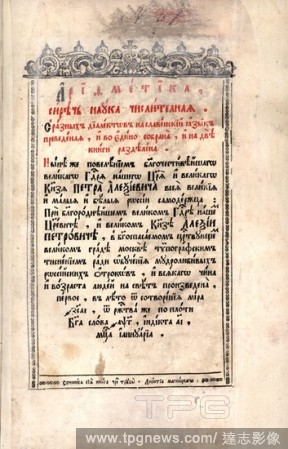 Арїѳметїка,
сирѣчь наука числителная.
С разныхъ дїалектовъ на славенскїй языкъ
преведеная, и во едино собрана, и на двѣ
книги раздѣлена.
Нынѣ же повелѣнїемъ благочестивѣйшагω
великагω гд҃ря нашегω цр҃я и великагω
кнз҃я Петра Алеѯїевича всея великїя
и малыя и бѣлыя рωссїи самодержца:
При благороднѣйшемъ великомъ гд҃рѣ нашемъ
цр҃евичѣ, и великомъ кнз҃ѣ Алеѯїи
Петровичѣ, в бгоспасаемомъ црствующемъ
великомъ градѣ москвѣ типографскимъ
тисненїемъ ради ωбученїя мудролюбивыхъ
рωссїйскихъ отрокωвъ, и всякагω чина
и возраста людей на свѣтъ произведена
первое, въ лѣто ѿ сотворенїя мїра
҂зсаі, ѿ рж҃тва же по плоти
Бг҃а слова ҂аѱг, індїкта аі
мц҃а їаннуарїа.
Сочинися сїя книга чрез труды Леонтїа Магницкагω.
TPG
www.tpgnews.com/達志影像